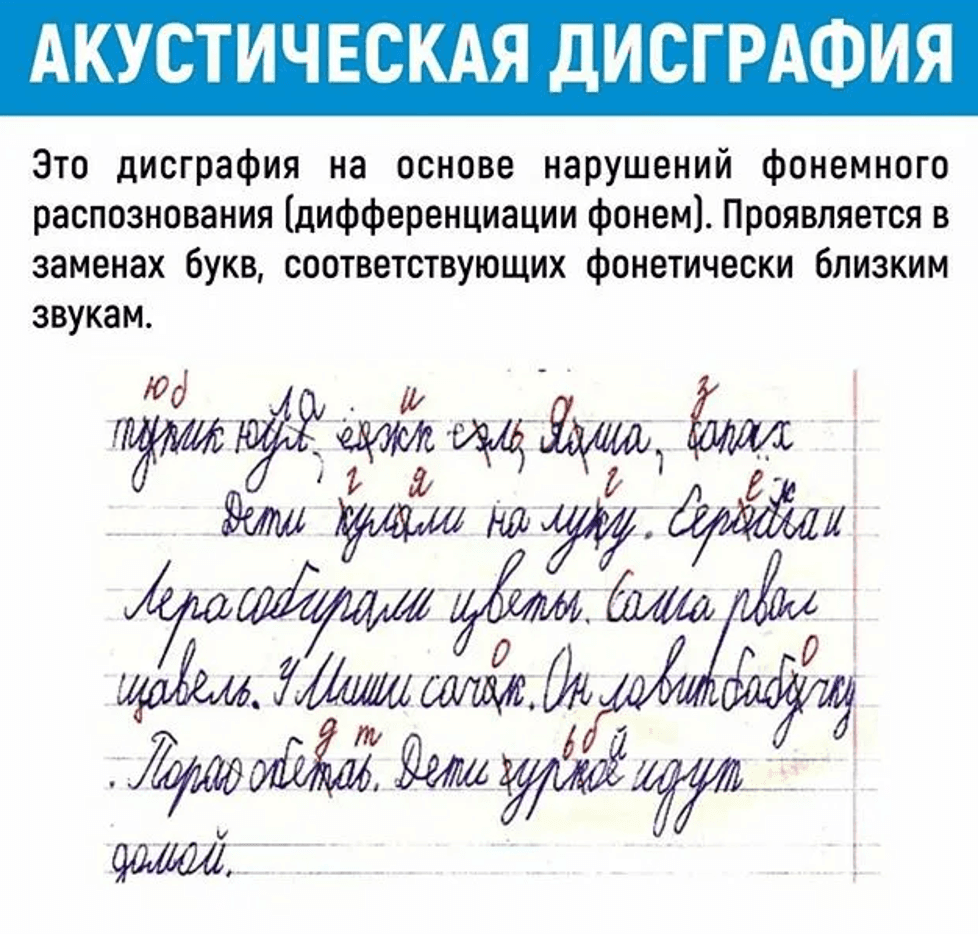 АКУСТИЧЕСКАЯ ДИСГРАФИЯ
Это дисграфия на основе нарушений фонемного
распознования (дифференциации фонем). Проявляется в
заменах букв, соответствующих фонетически близким
звукам.
ю б ла и я з
тупик
г я г ё ж
Дети кулали на луку. и
Лера собирали цветы. Саша рвал
о о
щавель. У Миши сачак. Он ловит бабучку
д т ь б й
. Пора Дети идут
домой.